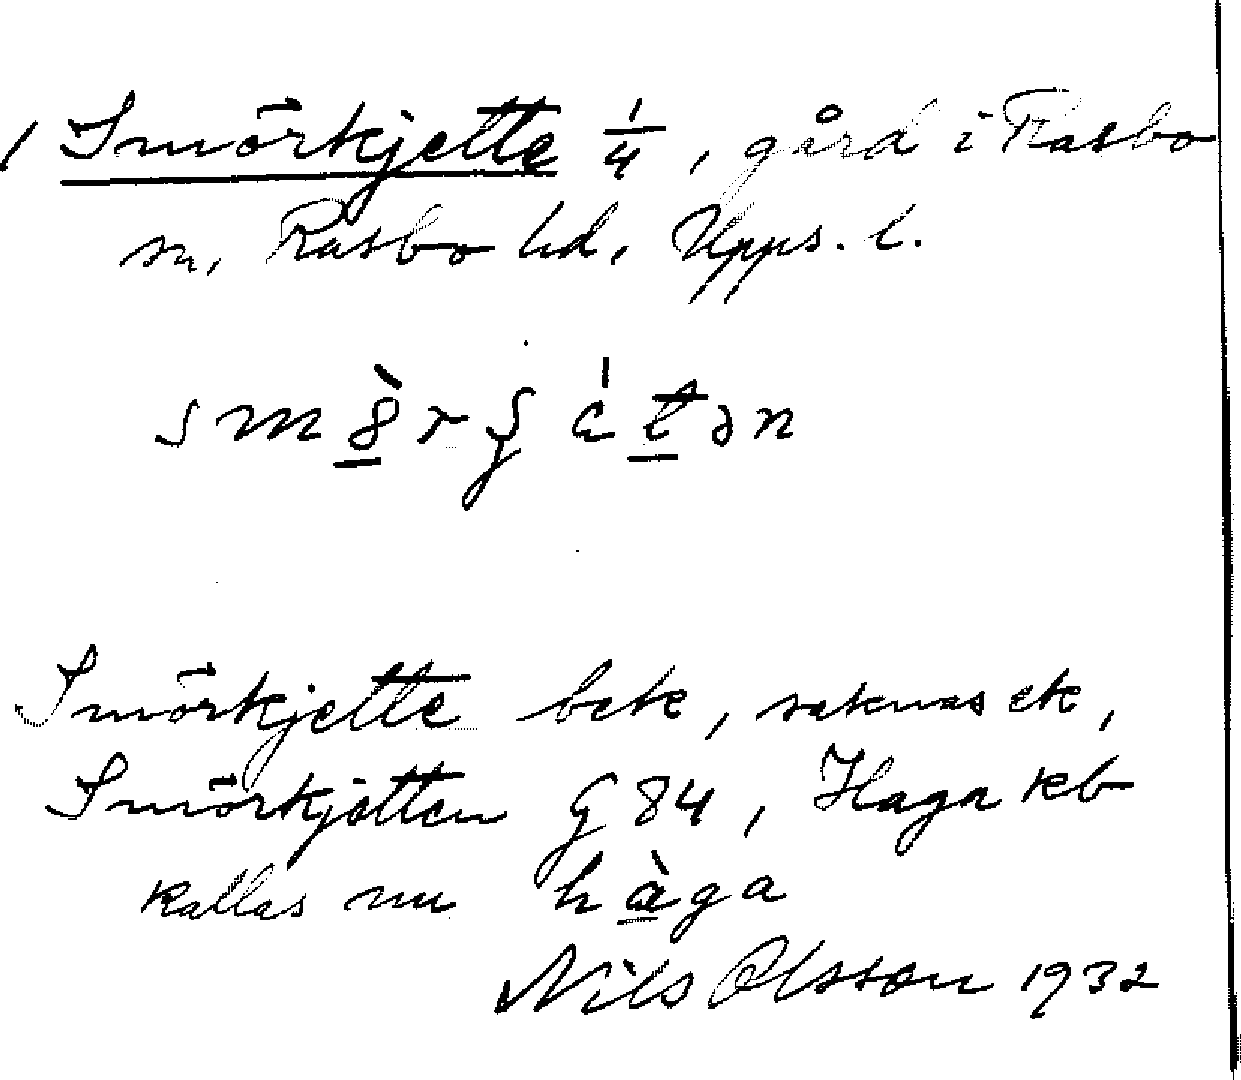 1 Smörkjette 1/4, gård i Rasbo
sn, Rasbo hd, Upps. l.
Smörkjette bek, saknas ek,
Smörkjätten G 84, Haga kb
kallas nu hàga
Nils Olsson 1932